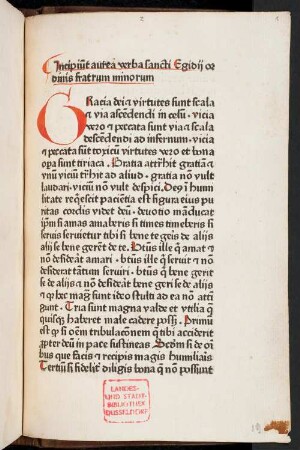 Incipiūt aurea verba sancti Egidij or
dinis fratrum minorum
Gracia dei ⁊ virtutes sunt scala
⁊ via ascēdendi in celū. vicia
vero ⁊ peccata sunt via ⁊ scala
descēdendi ad infernum. vicia
⁊ peccata sūt toxicū virtutes vero et bona
opa sunt tiriaca. Gratia attrhit gratiā ⁊
vnū viciū trhit ad aliud. gratia non vult
laudari. viciū nō vult despici. humi
litate reqͥescit paciētia est figura eius pu
ritas cordis videt deū. deuotio māducat
ip̄m si amas amaberis si times timeberis si
seruis seruietur tibi si bene te geris de alijs
alij se bene gerēt de te. Btūs ille qͥ amat ⁊
nō desiderat amari. btūs ille qͥ seruit ⁊ nō
desiderat tātum seruiri. btūs qͥ bene gerit
se de alijs ⁊ nō desiderat bene geri se de alijs
⁊ qꝛ hec mag̃ sunt ideo stulti ad ea nō atti
gunt. Tria sunt magna valde et vtilia q̄
quisqȝ haberet male cadere possȝ. Primū
est qͥ si oēm tribulacōnem q̄ tibi acciderit
ꝓpter deū in pace sustineas. Secdm si de oī
bus que facis ⁊ recipis magis humilias
Tertiū si fideliť diligis bona q̄ nō possunt
LANDES-
UND STADT-
BIBLIOTHEK
DÜSSELDORF